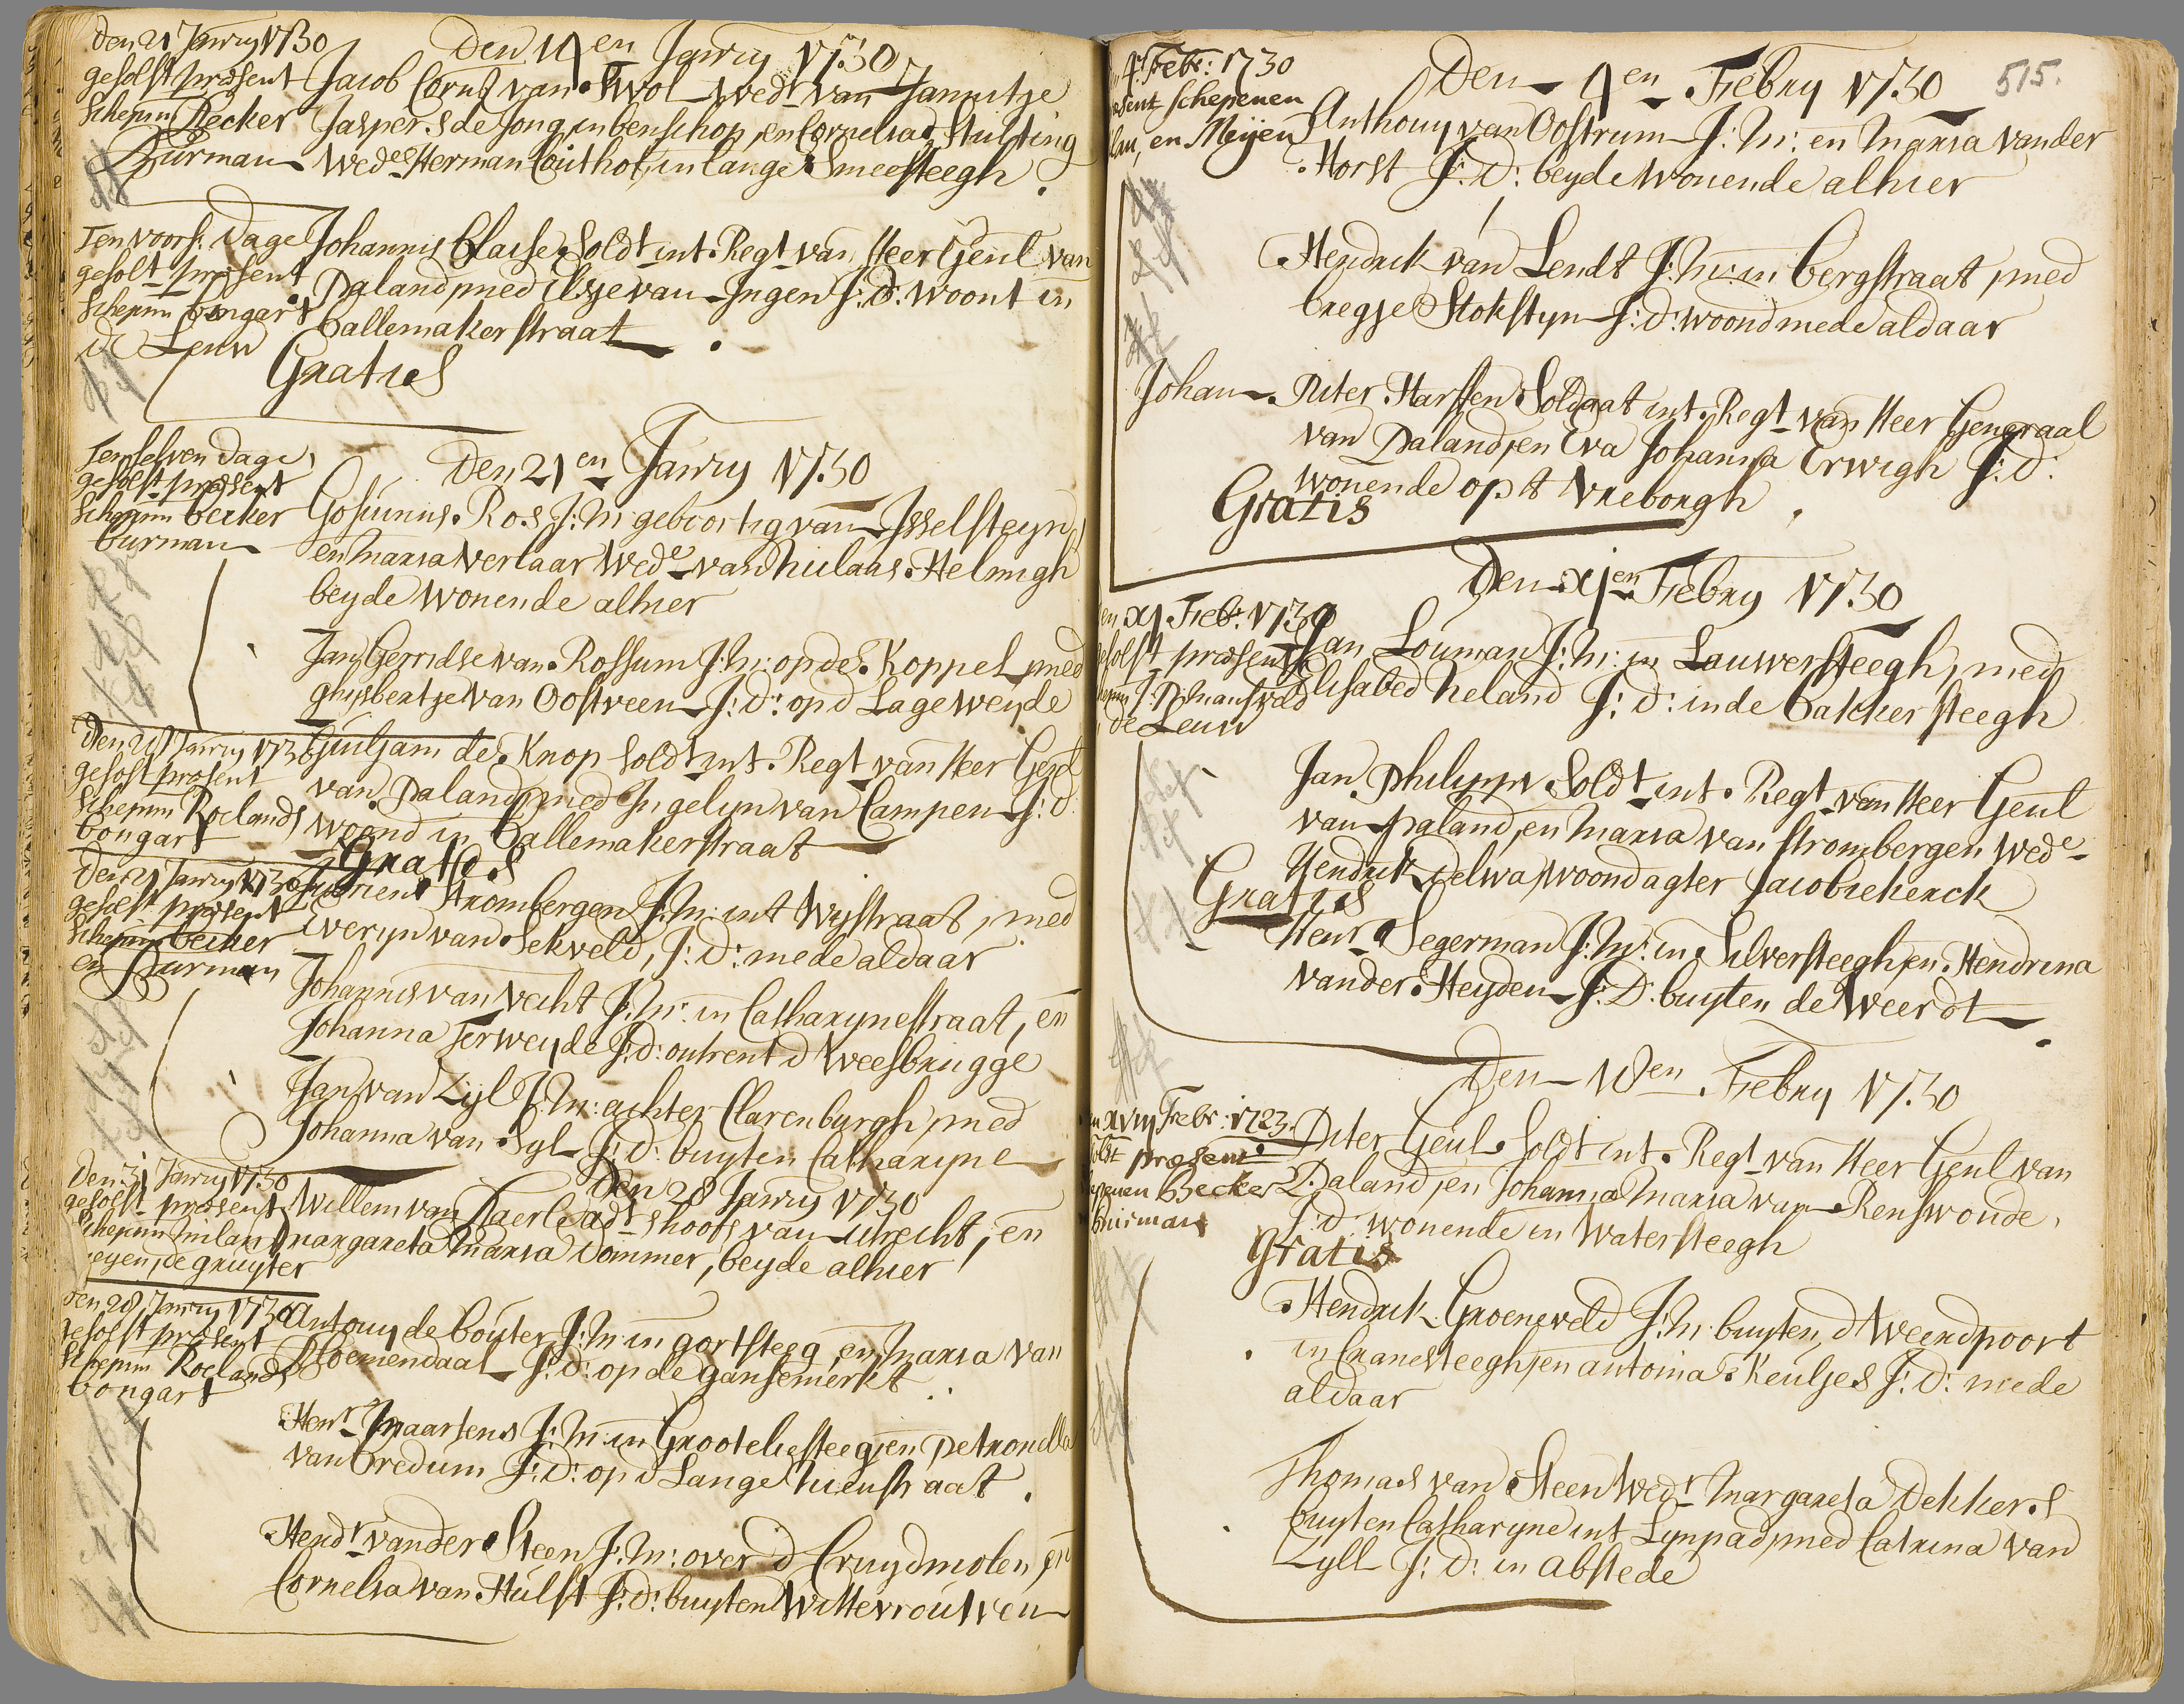 Den 21 Janry 1730
gesolst præsent
Schepnn Becker
Burman
Den 14en Janry 1730
Jacob Corns van Swol wedr van Jannitje
Jaspers de Jong, in benschop, en Cornelia Stulting
Wede Herman Couthof, in lange Smeesteegh
Ten voors. Dage
gesolt præsent
Schepnn bongart
de Leuw
Johannis Claise Soldt int Regt van Heer Genl van
Paland, med Ilsje van Ingen J: D: woont in
Ballemakerstraat
Graties
Ten selven Dage
gesolst præsent
Schepnn becker
burman
Den 21en Janry 1730
Gosuinus Ros J: M: geboortig van Isselsteyn,
en Maria Verlaar Wede van Niclaas Helmigh
beyde wonende alhier
Jan Gerridse van Rossum J: M: op de Koppel, med
ghysbertje van Oostveen J: D: op d Lage weyde
Den 21 Janry 1730
gesolst præsent
Schepnn Roelands
bongart
Guiljam de Knop soldt int Regt van Heer Genl
van Paland, med Ingelyn van Campen J: D:
woond in Ballemakerstraat
Gratis
Den 21 Janry 1730
gesolst præsent
Schepnn becker
en Burman
Strombergen J: M: int Wystraat, med
Everyn van Sekveld, J: D: mede aldaar
Johannis van Vecht J: M: in Catharynestraat, en
Johanna Terweyde J: D: ontrent d Weesbrugge
Jan van Zyl J: M: achter Clarenburgh, med
Johanna van Syl J: D: buyten Catharyne
Den 31 Janry 1730
gesolst præsent
Schepnn Milan
eyen, de gruyter
Den 28 Janry 1730
Willem van Daerle adt shoofs van Utrecht, en
Margareta Maria Dommer, beyde alhier
Den 28 Janry 1730
gesolst præsent
Schepnn Roelands
bongart
Antony de Couter J: M: in gortsteeg, en Maria van
Bloemendaal J: D: op de gansemerkt
Henr Maartens J: M: in Grooteliesteeg, en Petronella
van Bredum J: D: op d Lange Nieustraat
Hendr vander Steen J: M: over d Cruydmolen, en
Cornelia van Hulst J: D: buyten Wittevrouwen
515.
4 Febr: 1730
esent schepenen
lan, en Meijen
Den 4en Febry 1730
Anthony van Oostrum J: M: en Maria vander
Horst J: D: beyde wonende alhier
Hendrik van Lendt J: M: in bergstraat, med
bregje Stokstyn J: D: woond mede aldaar
Johan Piter Harssen Soldaat int Regt van Heer Generaal
van Paland, en Eva Johanna Erwigh J: D:
wonende op t Vreborgh
Gratis
Den xjen Febry 1730
en xj Feb: 1730
gesolst præsent
de Leuw
Jan Louman J: M: in Lauwersteegh, med
Elisabed Neland J: D: in de bakkersteegh
Jan Philipps Soldt int Regt van Heer Genl
van Paland, en Maria van Strombergen wede
Hendrik Delwa, woond agter Jacobiekerck
Gratis
Henr Segerman J: M: in Silversteegh, en Hendrina
vander Heyden J: D: buyten de Weerdt
Den 18en Febry 1730
en xviij Febr: 1723.
solst præsent
epenen Becker
Buirman
Piter Geul Soldt int Regt van Heer Genl van
Paland, en Johanna Maria van Renswoude,
J: D: wonende in Watersteegh
gratis
Hendrik Groeneveld J: M: buyten d Weerdpoort
in Cranesteegh, en antonia Keuljes J: D: mede
aldaar
Thomas van Steen Wedr Margareta Dekkers
buyten Catharyne int Lynpad, med Catrina van
Zyll J: D: in abstede